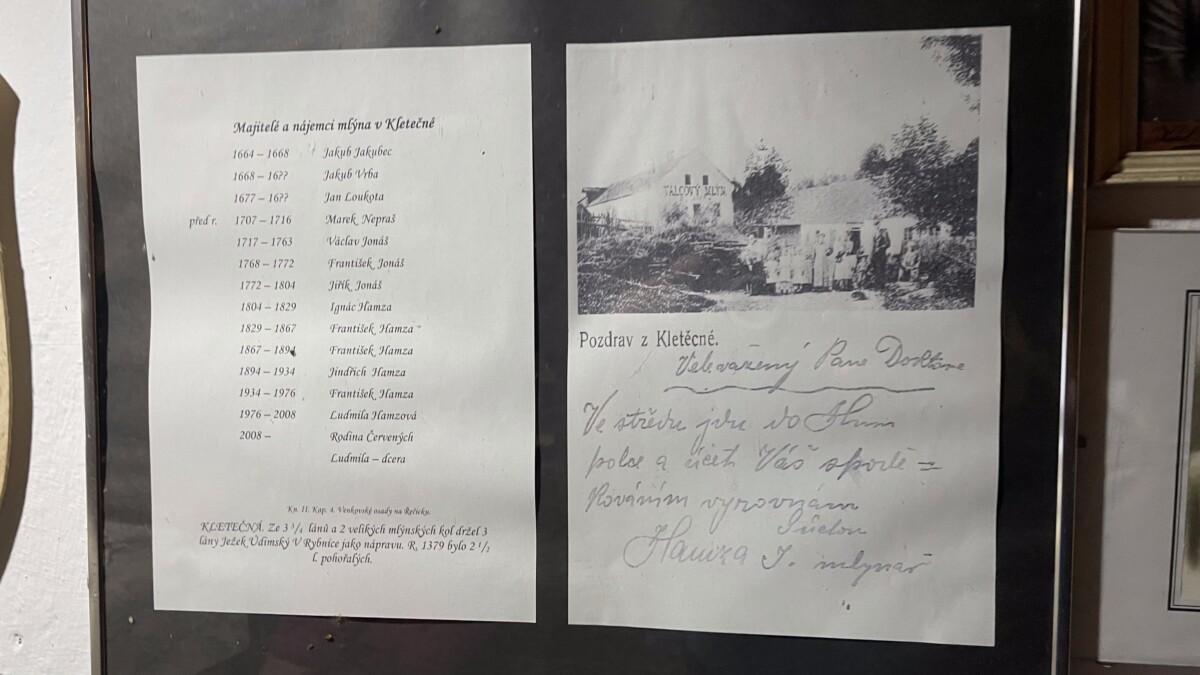 Majitelé a nájemci mlýna v Kletečné
1664 – 1668 Jakub Jakubec
1668 – 16?? Jakub Vrba
1677 – 16?? Jan Loukota
před r. 1707 – 1716 Marek Nepraš
1717 – 1763 Václav Jonáš
1768 – 1772 František Jonáš
1772 – 1804 Jiřík Jonáš
1804 – 1829 Ignác Hamza
1829 – 1867 František Hamza
1867 – 1894 František Hamza
1894 – 1934 Jindřich Hamza
1934 – 1976 František Hamza
1976 – 2008 Ludmila Hamzová
2008 – Rodina Červených
Ludmila – dcera
Kn. II. Kap. 4. Venkovské osady na Řečicku.
KLETEČNÁ. Ze 3 3/4 lánů a 2 velikých mlýnských kol držel 3
lány Ježek Údimský V Rybnice jako nápravu. R. 1379 bylo 2 1/2
l. pohořalých.
VÁLCOVÝ MLÝN
Pozdrav z Kletěcné.
Velevažený Pane Doktore
Ve středu jdu do Hum
polce a účet Váš
vyrovnám
Hamza J. mlynář